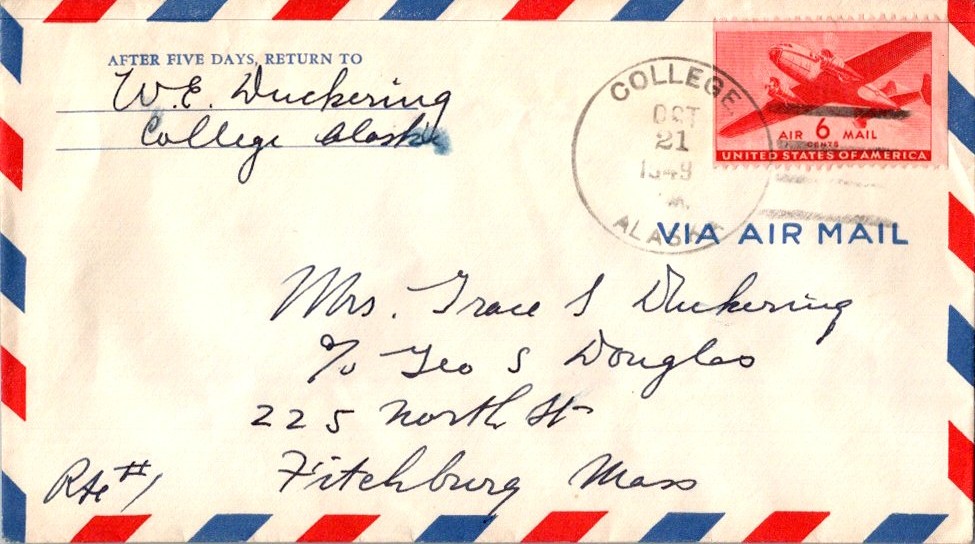 AFTER FIVE DAYS, RETURN TO
W.E. Duckering
College Alaska
COLLEGE,
OCT
21
1949
M.
ALASKA
AIR 6 MAIL
CENTS
UNITED STATES OF AMERICA
VIA AIR MAIL
Mrs. Grace S Duckering
c/o Geo S Douglas
225 North St
Fitchburg Mass
Rte #1